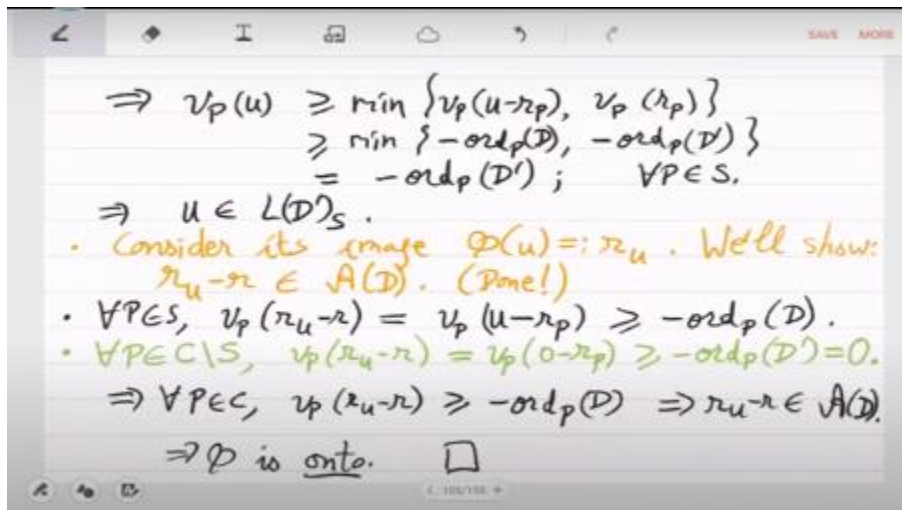 SAVE MORE
⇒ v_P(u) ≥ min {v_P(u-r_P), v_P(r_P)}
≥ min {-ord_P(D), -ord_P(D')}
= -ord_P(D') ; ∀P∈S.
⇒ u ∈ L(D')_S .
· Consider its image φ(u)=: r_u . We'll show:
r_u-r ∈ A(D). (Done!)
· ∀P∈S, v_P(r_u-r) = v_P(u-r_P) ≥ -ord_P(D).
· ∀P∈C\S, v_P(r_u-r) = v_P(0-r_P) ≥ -ord_P(D')=0.
⇒ ∀P∈C, v_P(r_u-r) ≥ -ord_P(D) ⇒ r_u-r ∈ A(D).
⇒ φ is onto. □